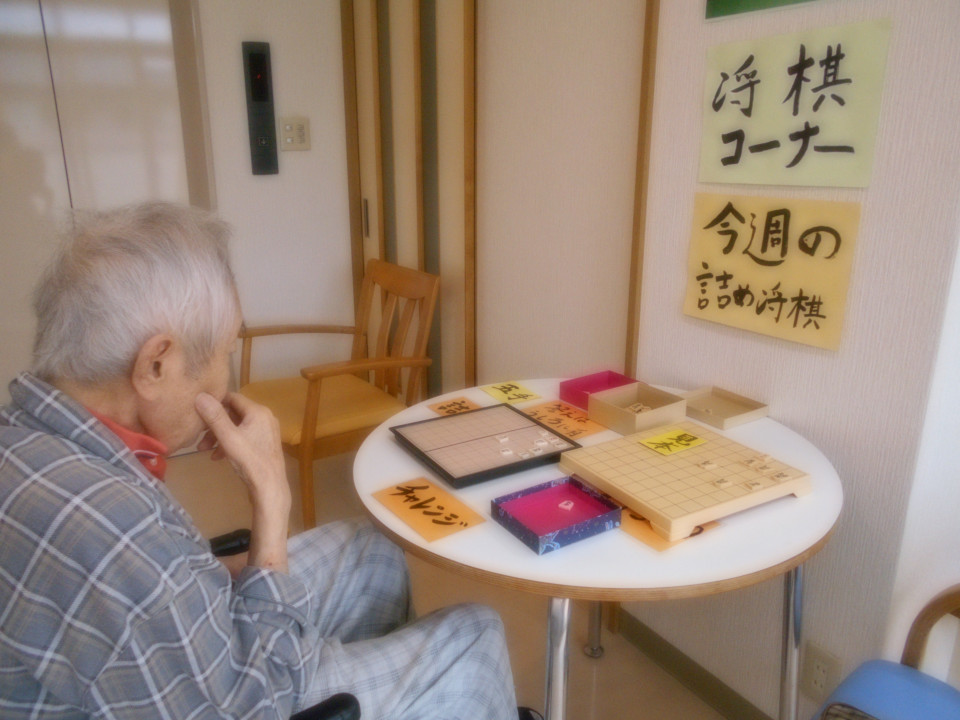 将棋
コーナー
今週の
詰め将棋
五手
見本
チャレンジ